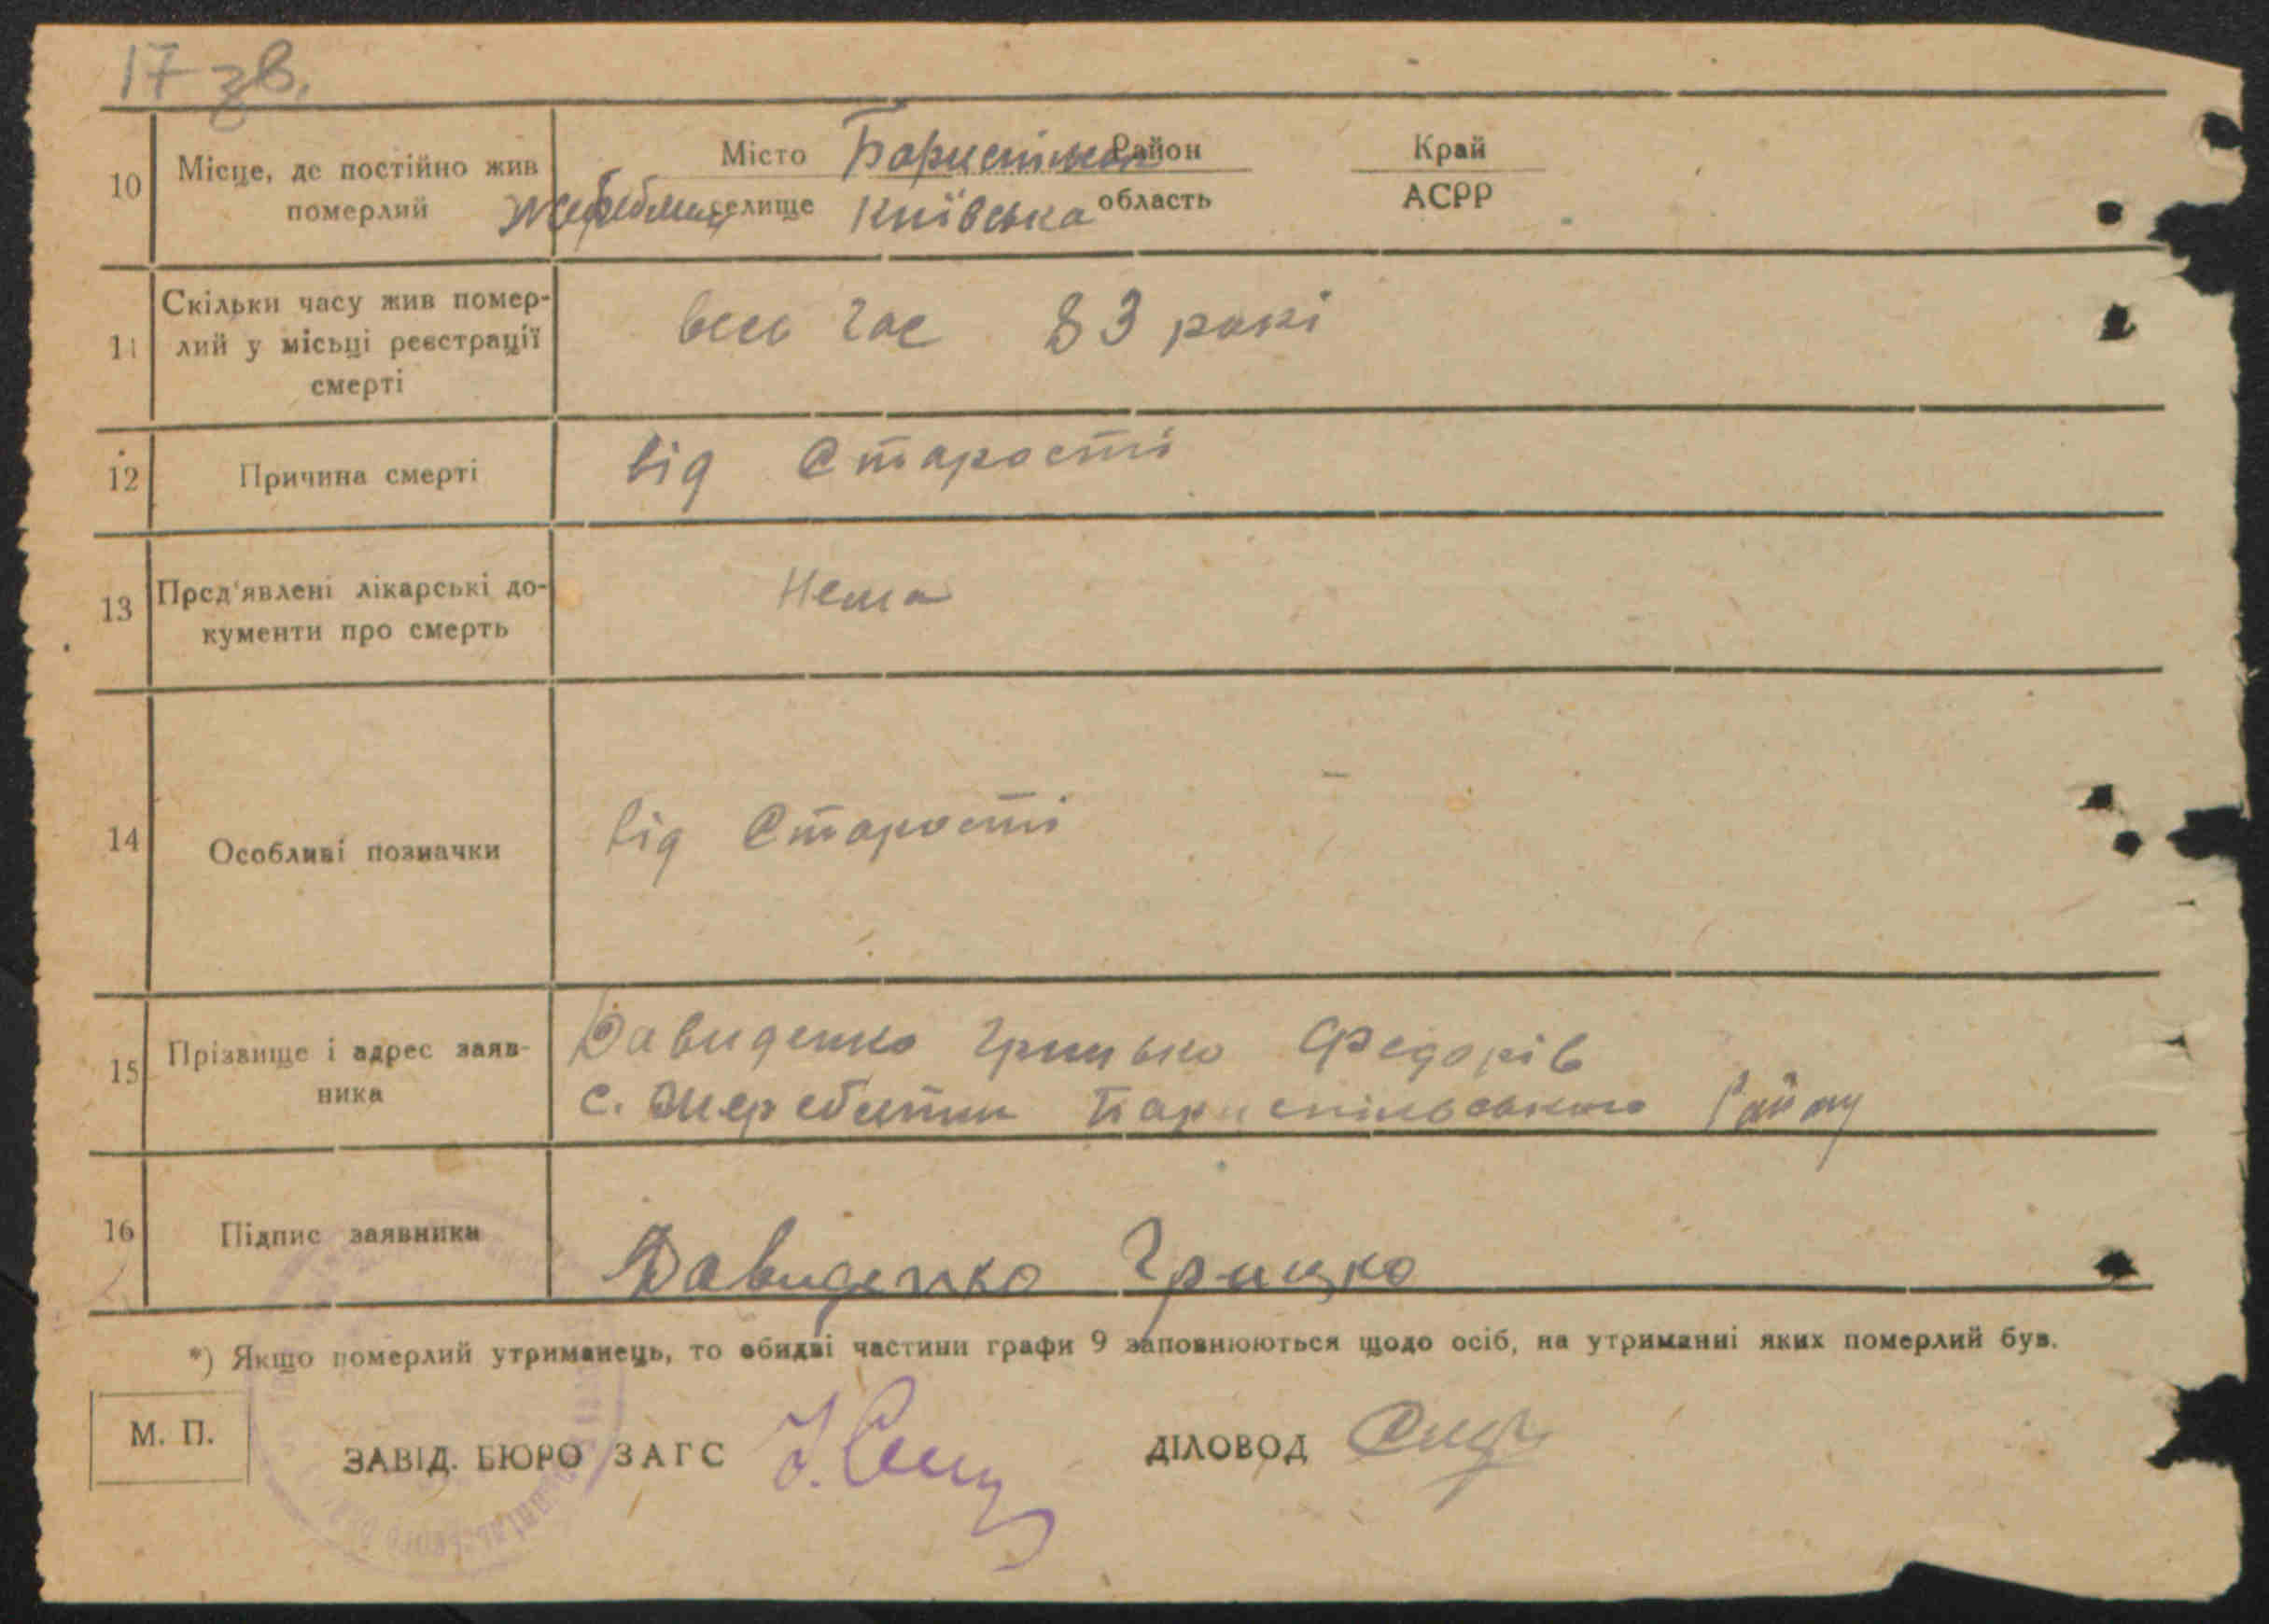 17 зв.
10 Місце, де постійно жив померлий
Місто Бориспільск Район Край
Жеребятин селище Київська область АСРР
11 Скільки часу жив помер-
лий у місьці реєстрації
смерті
весь час 83 рокі
12 Причина смерті від Старості
13 Пред'явлені лікарські до-
кументи про смерть
Нема
14 Особливі позначки від Старості
15 Прізвище і адрес заяв-
ника
Давиденко Грицько Федорів
с. Жеребятин Бориспільського Району
16 Підпис заявника Давиденко Грицко
*) Якщо померлий утриманець, то обидві частини графи 9 заповнюються щодо осіб, на утриманні яких померлий був.
М. П.
ЗАВІД. БЮРО ЗАГС ДІЛОВОД